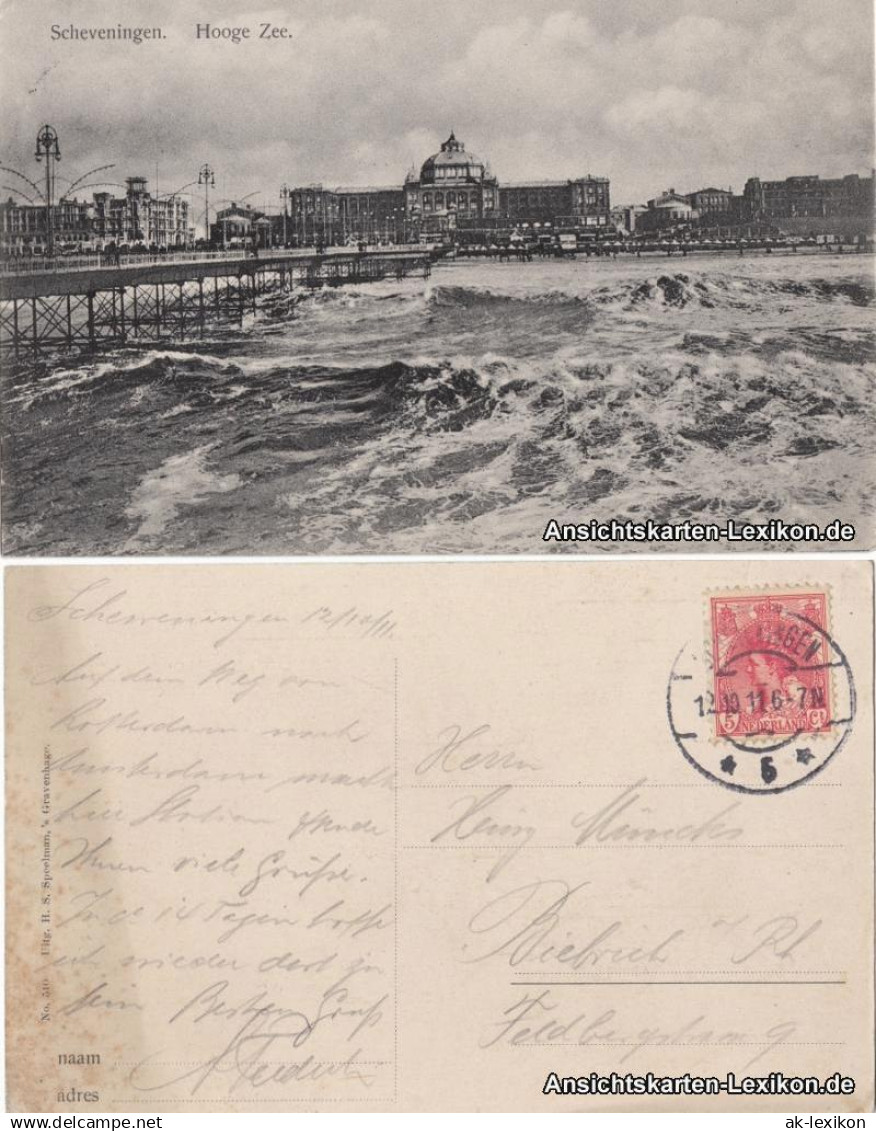 Scheveningen. Hooge Zee.
Ansichtskarten-Lexikon.de
Scheveningen 12/10/11.
Auf dem Weg von
Rotterdam nach
Amsterdam mach
hier Station
Ihnen viele Grüße.
In ca 14 Tagen hoffe
ich wieder dort zu
sein Besten Gruß
naam
adres
No. 510 Uitg. H. S. Speelman, 's Gravenhage.
12.10.11 6-7N
5
5 Ct
NEDERLAND
Herrn
Heinz
Biebrich a/Rh
Feldbergstrasse 9
Ansichtskarten-Lexikon.de
www.delcampe.net
ak-lexikon